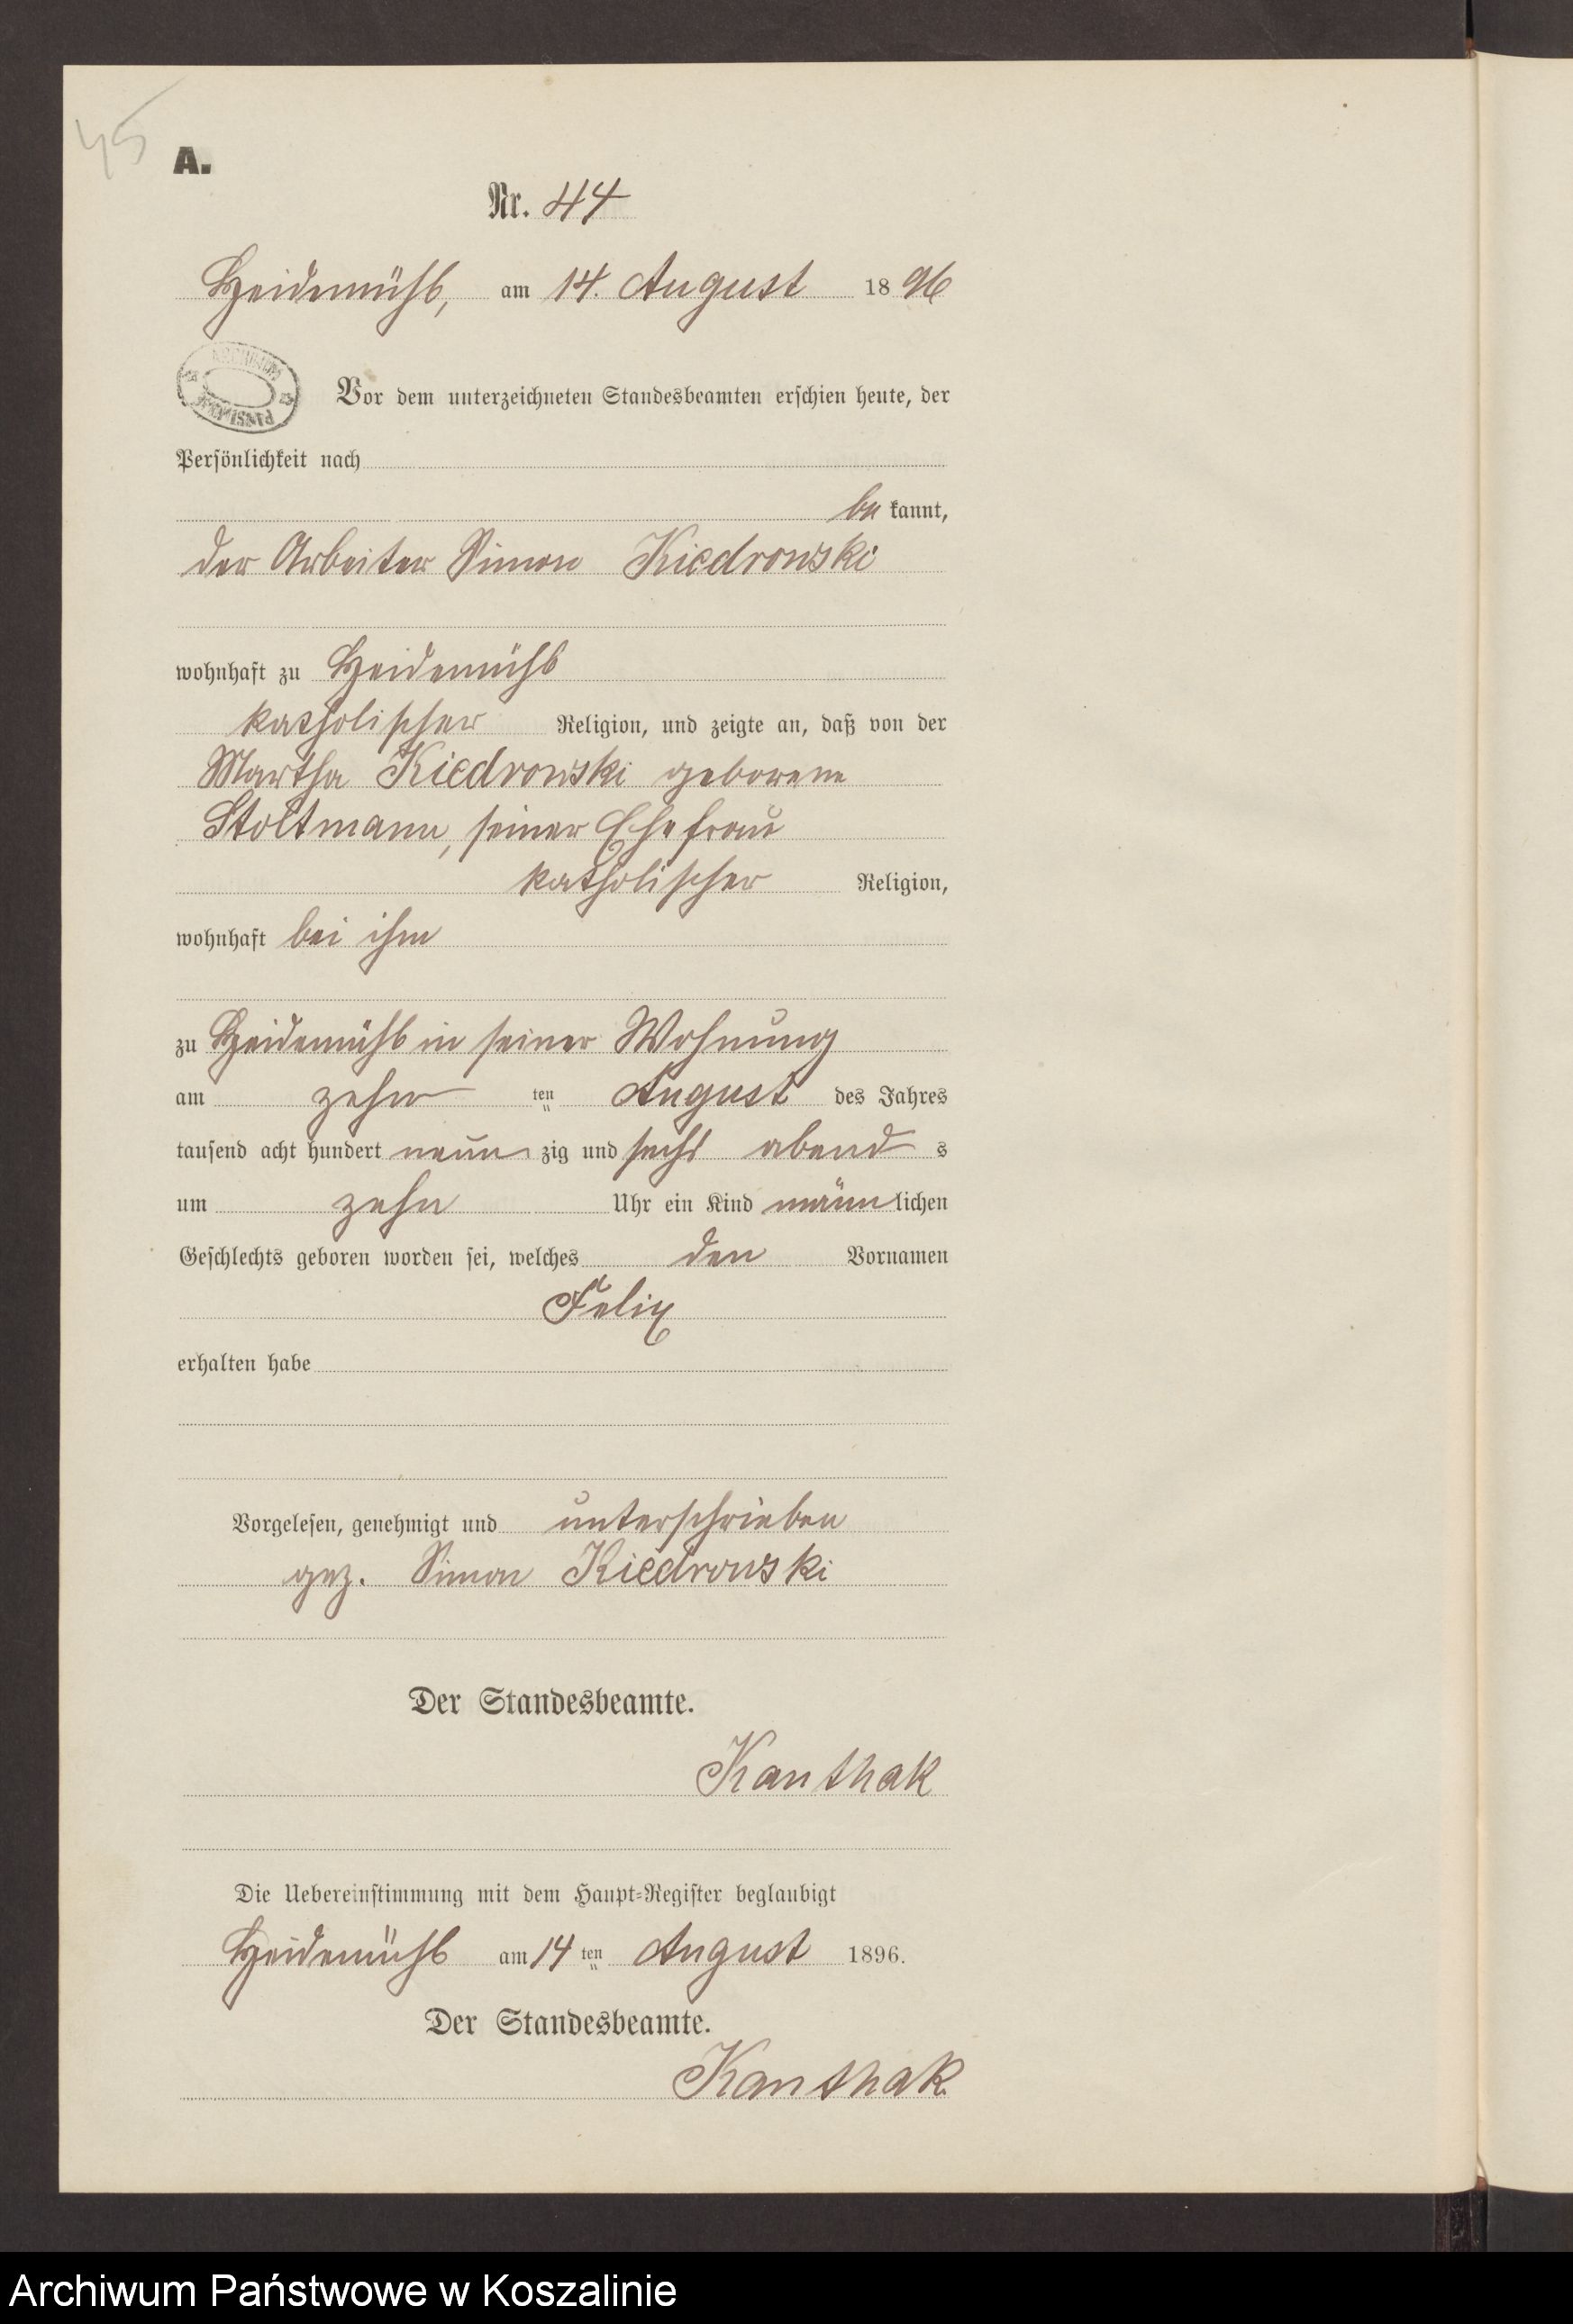 45
A.
Nr. 44
Heidemühl, am 14. August 1896
ARCHIWUM
PAŃSTWOWE
Vor dem unterzeichneten Standesbeamten erschien heute, der
Persönlichkeit nach
be kannt,
der Arbeiter Simon Kiedrowski
wohnhaft zu Heidemühl
katholischer Religion, und zeigte an, daß von der
Martha Kiedrowski geborene
Stoltmann, seiner Ehefrau
katholischer Religion,
wohnhaft bei ihm
zu Heidemühl in seiner Wohnung
am zehn ten August des Jahres
tausend acht hundert neun zig und sechs abend s
um zehn Uhr ein Kind männ lichen
Geschlechts geboren worden sei, welches den Vornamen
Felix
erhalten habe
Vorgelesen, genehmigt und unterschrieben
gez. Simon Kiedrowski
Der Standesbeamte.
Kanthak
Die Uebereinstimmung mit dem Haupt-Register beglaubigt
Heidemühl am 14 ten August 1896.
Der Standesbeamte.
Kanthak
Archiwum Państwowe w Koszalinie